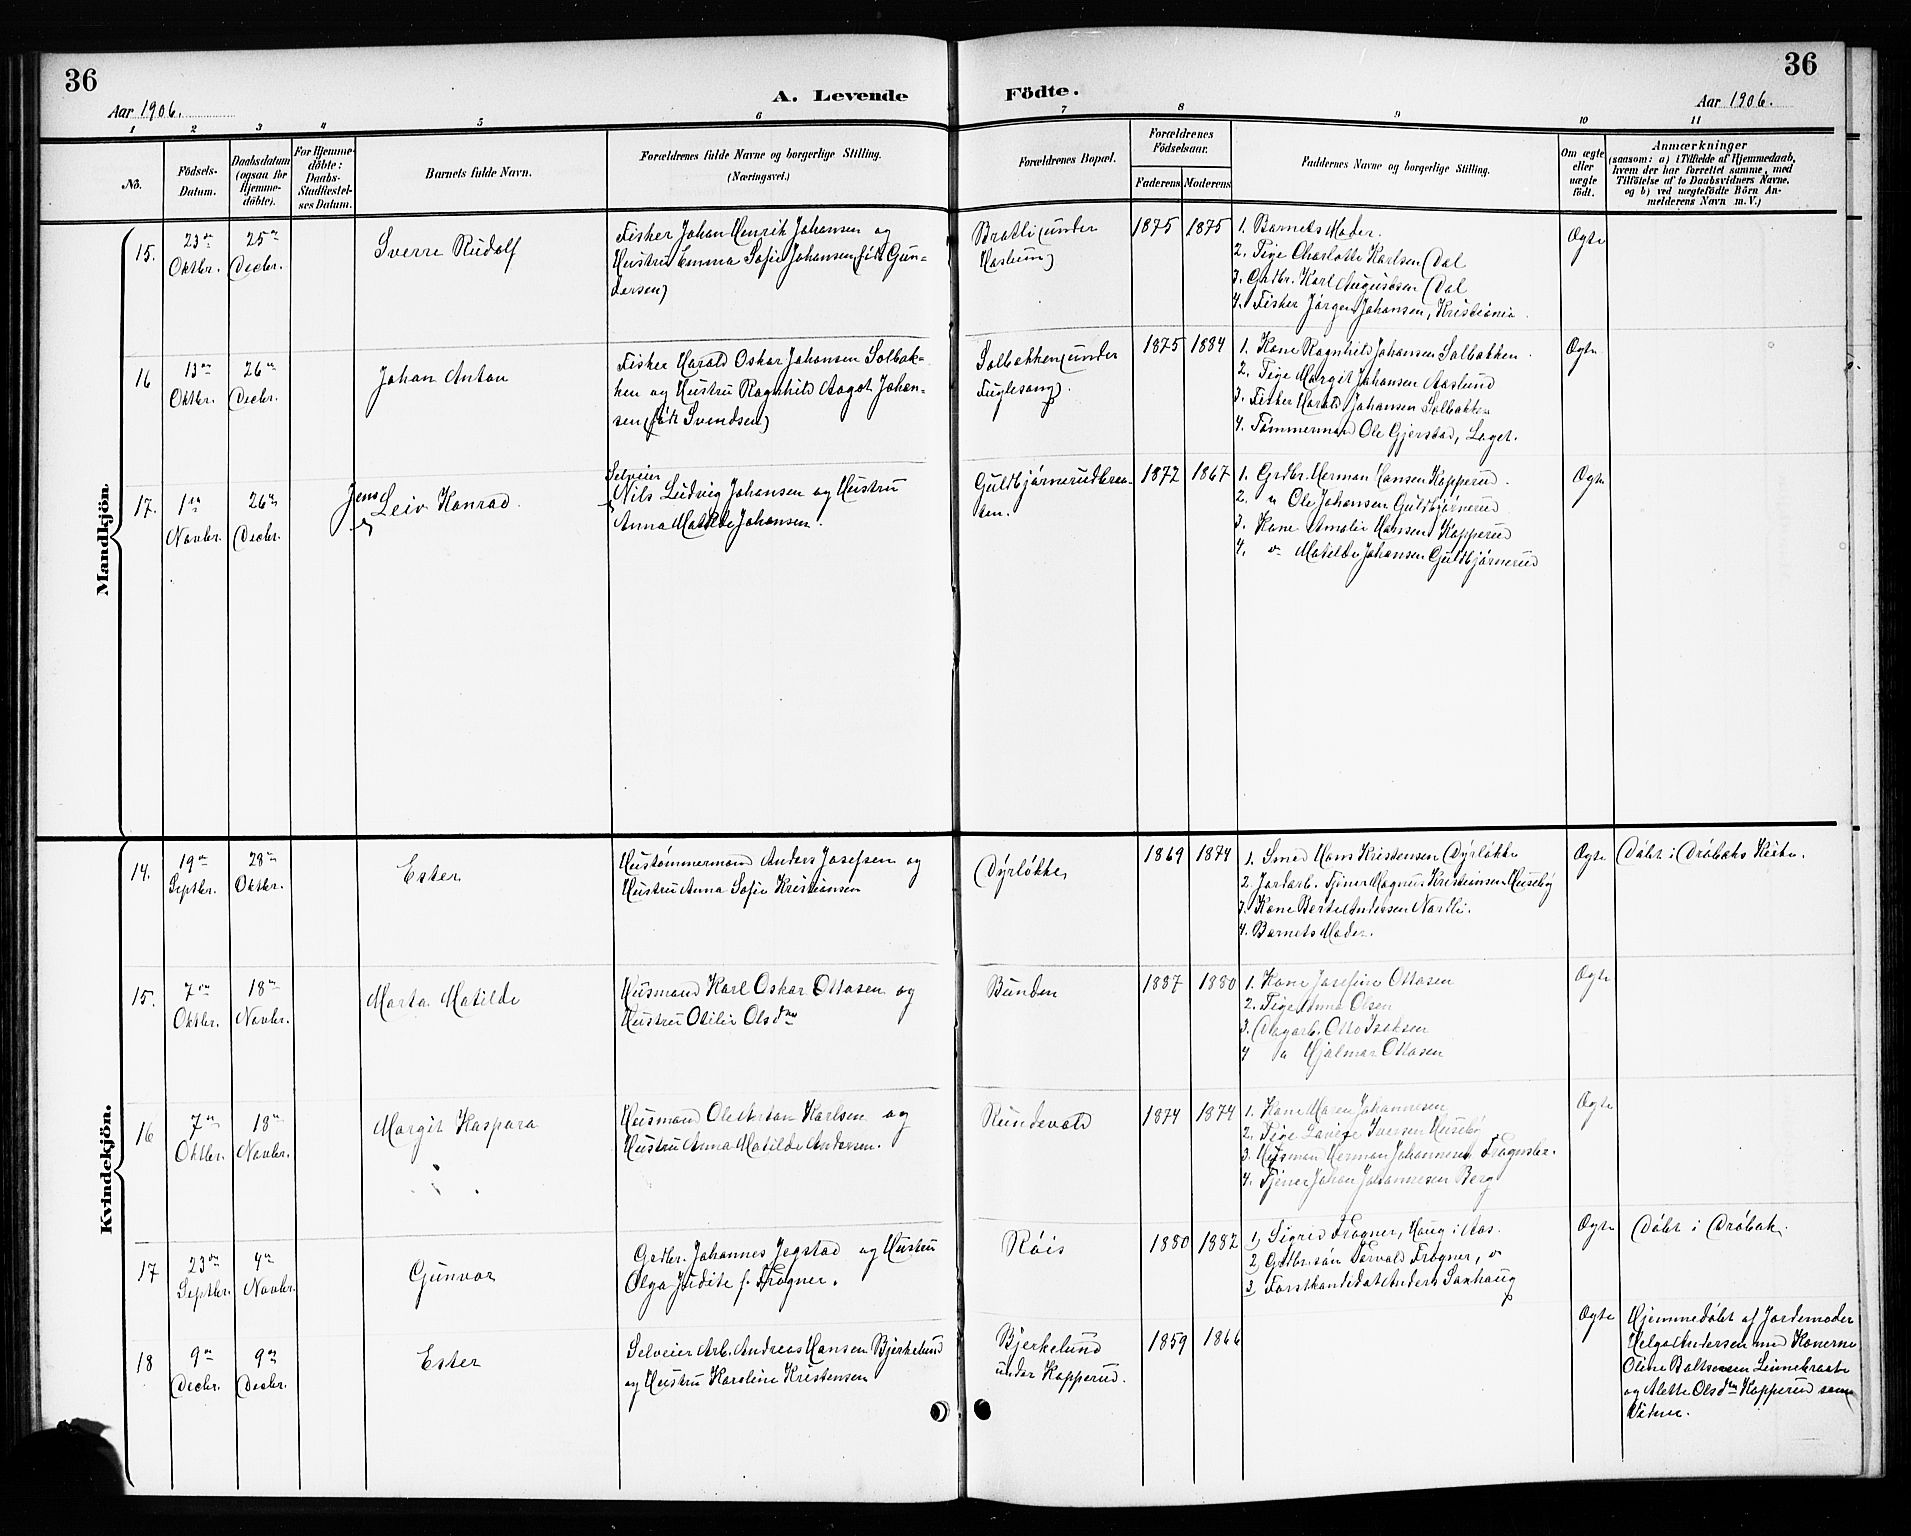 36
36
Aar 1906.
A. Levende Födte.
Aar 1906.
1 2 3 4 5 6 7 8 9 10 11
No.
Födsels-
Datum.
Daabsdatum
(ogsaa for
Hjemme-
döbte).
For Hjemme-
döbte:
Daabs-
Stadfæstel-
ses Datum.
Barnets fulde Navn.
Forældrenes fulde Navne og borgerlige Stilling.
(Næringsvei.)
Forældrenes Bopæl.
Forældrenes
Födselsaar.
Faderens Moderens
Faddernes Navne og borgerlige Stilling.
Om ægte
eller
uægte
födt.
Anmærkninger
(saasom: a) i Tilfælde af Hjemmedaab,
hvem der har forrettet samme, med
Tilföielse af to Daabsvidners Navne,
og b) ved uegtefödte Börn An-
melderens Navn m. V.)
Mandkjön
15.
23de
Oktbr.
25de
Decbr.
Sverre Rudolf
Fisker Johan Henrik Johansen og
Hustru Emma Sofie Johansen (født Gun-
dersen)
Bratli (under
1875 1875
1. Barnets Moder.
2. Pige Charlotte Karlsen Dal
3. Grdbr. Karl Augustsen Dal
4. Fisker Jørgen Johansen, Kristiania.
Ægte
16
13de
Oktbr.
26de
Decbr.
Johan Anton
Fisker Harald Oskar Johansen Solbak-
ken og Hustru Ragnhild Aagot Johan-
sen (født Svendsen)
Solbakken (under
Fuglesang).
1875 1884
1. Kone Ragnhild Johansen Solbakken.
2. Pige Margit Johansen Aaslund
3. Fisker Harald Johansen Solbakken
4. Tømmermand Ole Gjerstad, Laget.
Ægte
17.
1ste
Novbr.
26de
Decbr.
Jens
Leiv Konrad.
Selveier
Nils Ludvig Johansen og Hustru
Anna Matilde Johansen.
1872 1867
1. Grdbr. Herman Hansen Kopperud.
2. " Ole Johansen Guldbjørnerud
3. Kone Amalie Hansen Kopperud
4. " Matilde Johansen Guldbjørnerud
Ægte
Kvindekjön.
14.
19de
Septbr.
28de
Oktbr.
Ester
Hustømmermand Anders Josefsen og
Hustru Anna Sofie Kristiansen
Dyrløkke
1869 1874
1. Smed Hans Kristensen Dyrløkke
2. Jordarb. Tjener Magnus Kristiansen Huseby
3. Kone Berte Andersen Nordli.
4. Barnets Moder.
Ægte
Døbt i Drøbaks Kirke.
15.
7de
Oktbr.
18de
Novbr.
Marta Matilde
Husmand Karl Oskar Ottosen og
Hustru Otilie Olsdtr
Bunden
1887 1880
1. Kone Josefine Ottosen
2. Pige Anna Olsen
3. Dagarb. Otto Isaksen
4 " Hjalmar Ottosen
Ægte
16
7de
Oktbr.
18de
Novbr.
Margit Kaspara
Husmand Ole Anton Karlsen og
Hustru Anna Matilde Andersen.
Rundevold
1874 1874
1. Kone Maren Johannesen
2. Pige Lavise Iversen Huseby
3. Husmand Herman Johannesen
4. Tjener Johan Johannesen Berg
Ægte
17
23de
Septbr.
4de
Novbr.
Gunvor
Grdbr. Johannes Jegstad og Hustru
Olga Judite f. Frogner.
Røis
1880 1882
1) Sigrid Frogner, Haug i Aas.
2) Grdbrsøn Torvald Frogner, "
3) Forstkandidat Anders Saxhaug
Ægte
Døbt i Drøbak.
18
9de
Decbr.
9de
Decbr.
Ester
Selveier Arb. Andreas Hansen Bjerkelund
og Hustru Karoline Kristensen
Bjerkelund
under Kopperud.
1859 1866
Ægte
Hjemmedøbt af Jordemoder
Helga Andersen med Konerne
Oline Baltsersen
og Alette Olsdtr Kopperud som
Vidner.